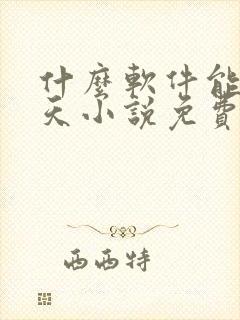 什麼軟件能
天小說免費
西西特